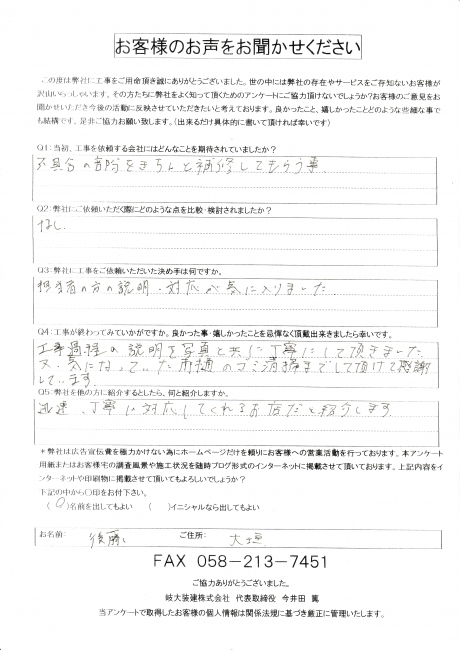 お客様のお声をお聞かせください
この度は弊社に工事をご用命頂き誠にありがとうございました。世の中には弊社の存在やサービスをご存知ないお客様が
沢山いらっしゃいます。その方たちに弊社をよく知って頂くためのアンケートにご協力頂けないでしょうか?お客様のご意見をお
聞かせいただき今後の活動に反映させていただきたいと考えております。良かったこと、嬉しかったことどのような些細な事で
も結構です。是非ご協力お願い致します。(出来るだけ具体的に書いて頂ければ幸いです)
Q1:当初、工事を依頼する会社にはどんなことを期待されていましたか?
不具合の箇所をきちんと補修してもらう事
Q2:弊社にご依頼いただく際にどのような点を比較・検討されましたか?
なし.
Q3:弊社に工事をご依頼いただいた決め手は何ですか。
担当者の方の説明・対応が気に入りました
Q4:工事が終わってみていかがですか。良かった事・嬉しかったことを忌憚なく頂戴出来ましたら幸いです。
工事過程の説明を写真と共に丁寧にして頂きました
又、気になっていた雨樋のゴミ清掃までして頂けて感謝
しています.
Q5:弊社を他の方に紹介するとしたら、何と紹介しますか。
迅速、丁寧に対応してくれるお店だと紹介します
*弊社は広告宣伝費を極力かけない為にホームページだけを頼りにお客様への営業活動を行っております。本アンケート
用紙またはお客様宅の調査風景や施工状況を随時ブログ形式のインターネットに掲載させて頂いております。上記内容をイ
ンターネットや印刷物に掲載させて頂いてもよろしいでしょうか?
下記の中から○印をお付下さい。
(○)名前を出してもよい ( )イニシャルなら出してもよい
お名前: 後藤 ご住所: 大垣
FAX 058-213-7451
ご協力ありがとうございました。
岐大装建株式会社 代表取締役 今井田 篤
当アンケートで取得したお客様の個人情報は関係法規に基づき厳正に管理いたします。